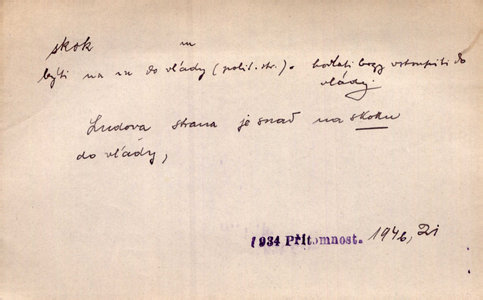 skok m
býti na m do vlády (polit. str.).
vstoupiti do
vlády.
Ludova strana je snad na skoku
do vlády,
1934 Přítomnost. 1946, 21